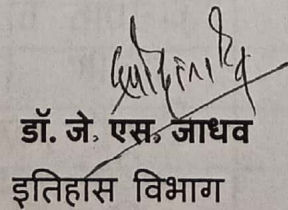 डॉ. जे. एस. जाधव
इतिहास विभाग